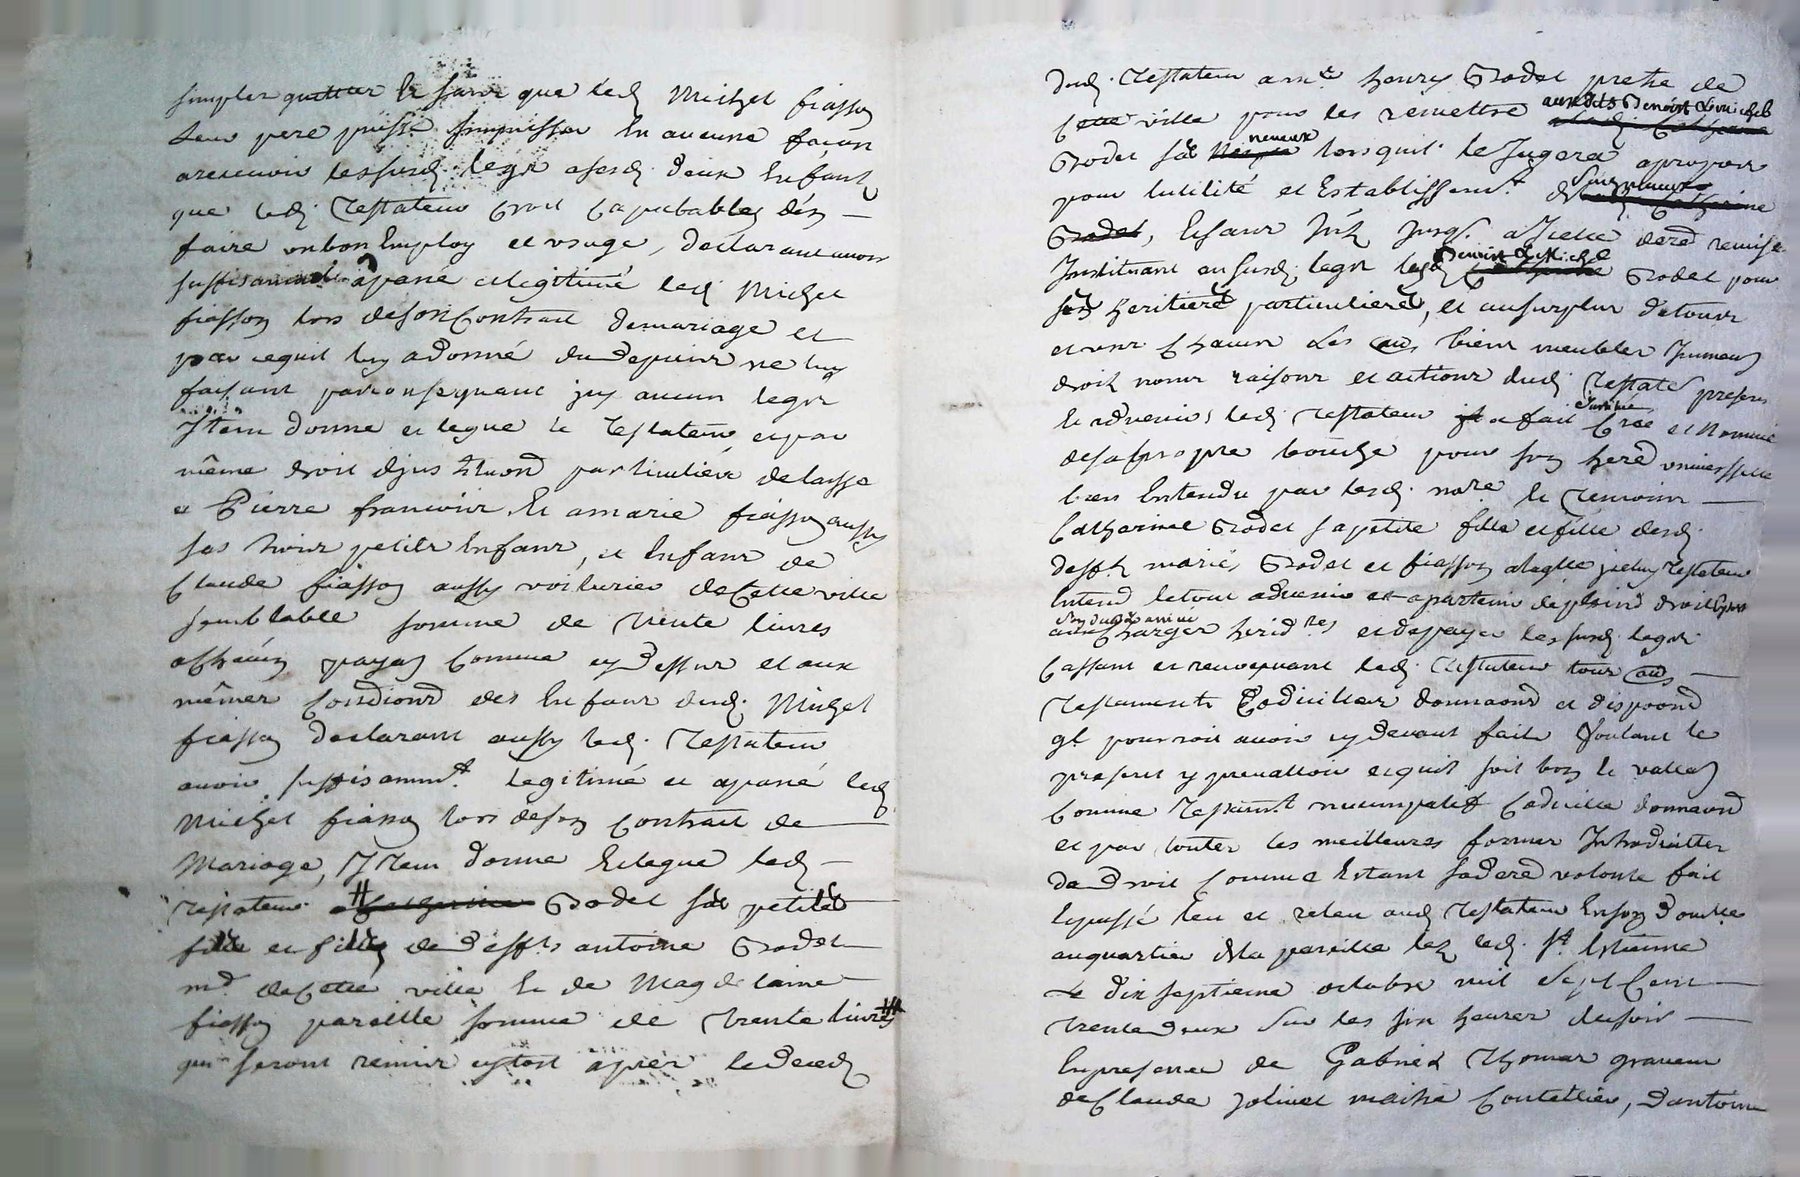 simples quitter & sans que led. Michel fiasson
leur pere puisse simmisser en aucune facon
a recevoir lesusd. legs a sesd. deux Enfants
que led. Testateur croit capabables den
faire un bon Employ et usage, declarant avoir
suffisamment apané et legitimé led. Michel
fiasson lors de son Contrait de mariage et
par ce quil luy a donné du depuis ne luy
faisant par consequant icy aucun legs
Item donne et legue le Testateur et par
même droit dinstituon particuliere delaisse
a Pierre francois, et a marie fiasson aussy
ses trois petits Enfans, et Enfans de
Claude fiasson aussy voiturier de Cette ville
semblable somme de trente livres
a chacun payab. Comme cy dessus et aux
mêmes Condions des Enfans dud. Michel
fiasson declarant aussy led. Testateur
avoir suffisamnt. legitimé et apané led.
Michel fiasson lors de son Contrait de
Mariage, Item donne Et legue led.
testateur # a Catherine Godet ses petites
filles et filles de deffts antoine Godet
md. de Cette ville & de Magdelaine
fiasson pareille somme de trente livres
qui seront remis cytost apres le deced
dud. Testateur a mre. henry Godet pretre de
Cette ville pour les remettre auxdits Benoist & michel
Godet ses neveux lorsquil le Jugera apropos
pour lutilité et Establissemt. desdits neveux
Godet,
Instituant en susd. legs lesd. Benoist & Michel Godet pour
ses heritiers particuliers, et au surplus de tous
et uns Chacun les aus biens meubles Immeub.
droits noms raisons et actions dud. Testate. presens
& advenir, led. Testateur a fait institué Crée et Nommé
de sa propre bouche pour son here. universelle
bien Entendu par lesd. nore. & temoins
Catherine Godet sa petite fille et fille desd.
deffts mariés Godet et fiasson a laqlle icelluy Testateur
Entend le tout advenir et apartenir de plein droit
aux Charges heridres et de payer lesusd. legs
Cassant et revoquant led. Testateur tous aus
Testaments Codicilles donnaons et disposons
ql. pourroit avoir cy devant faits Voulant le
present y prevalloir et quil soit bon & vallab.
Comme Testamt. nuncupatif Codicille donnaon
et par toutes les meilleures formes Introduittes
de droit Comme Estant sa dere. volonté fait
& passé leu et releu aud. Testateur En son domille
au quartier de la pareille lez led. St. Estienne
Le dix septieme octobre mil Sept Cent
trente deux sur les six heures du soir
En presence de Gabriel Thomas graveur
de Claude Jolivet maitre Coutellier, dantoine